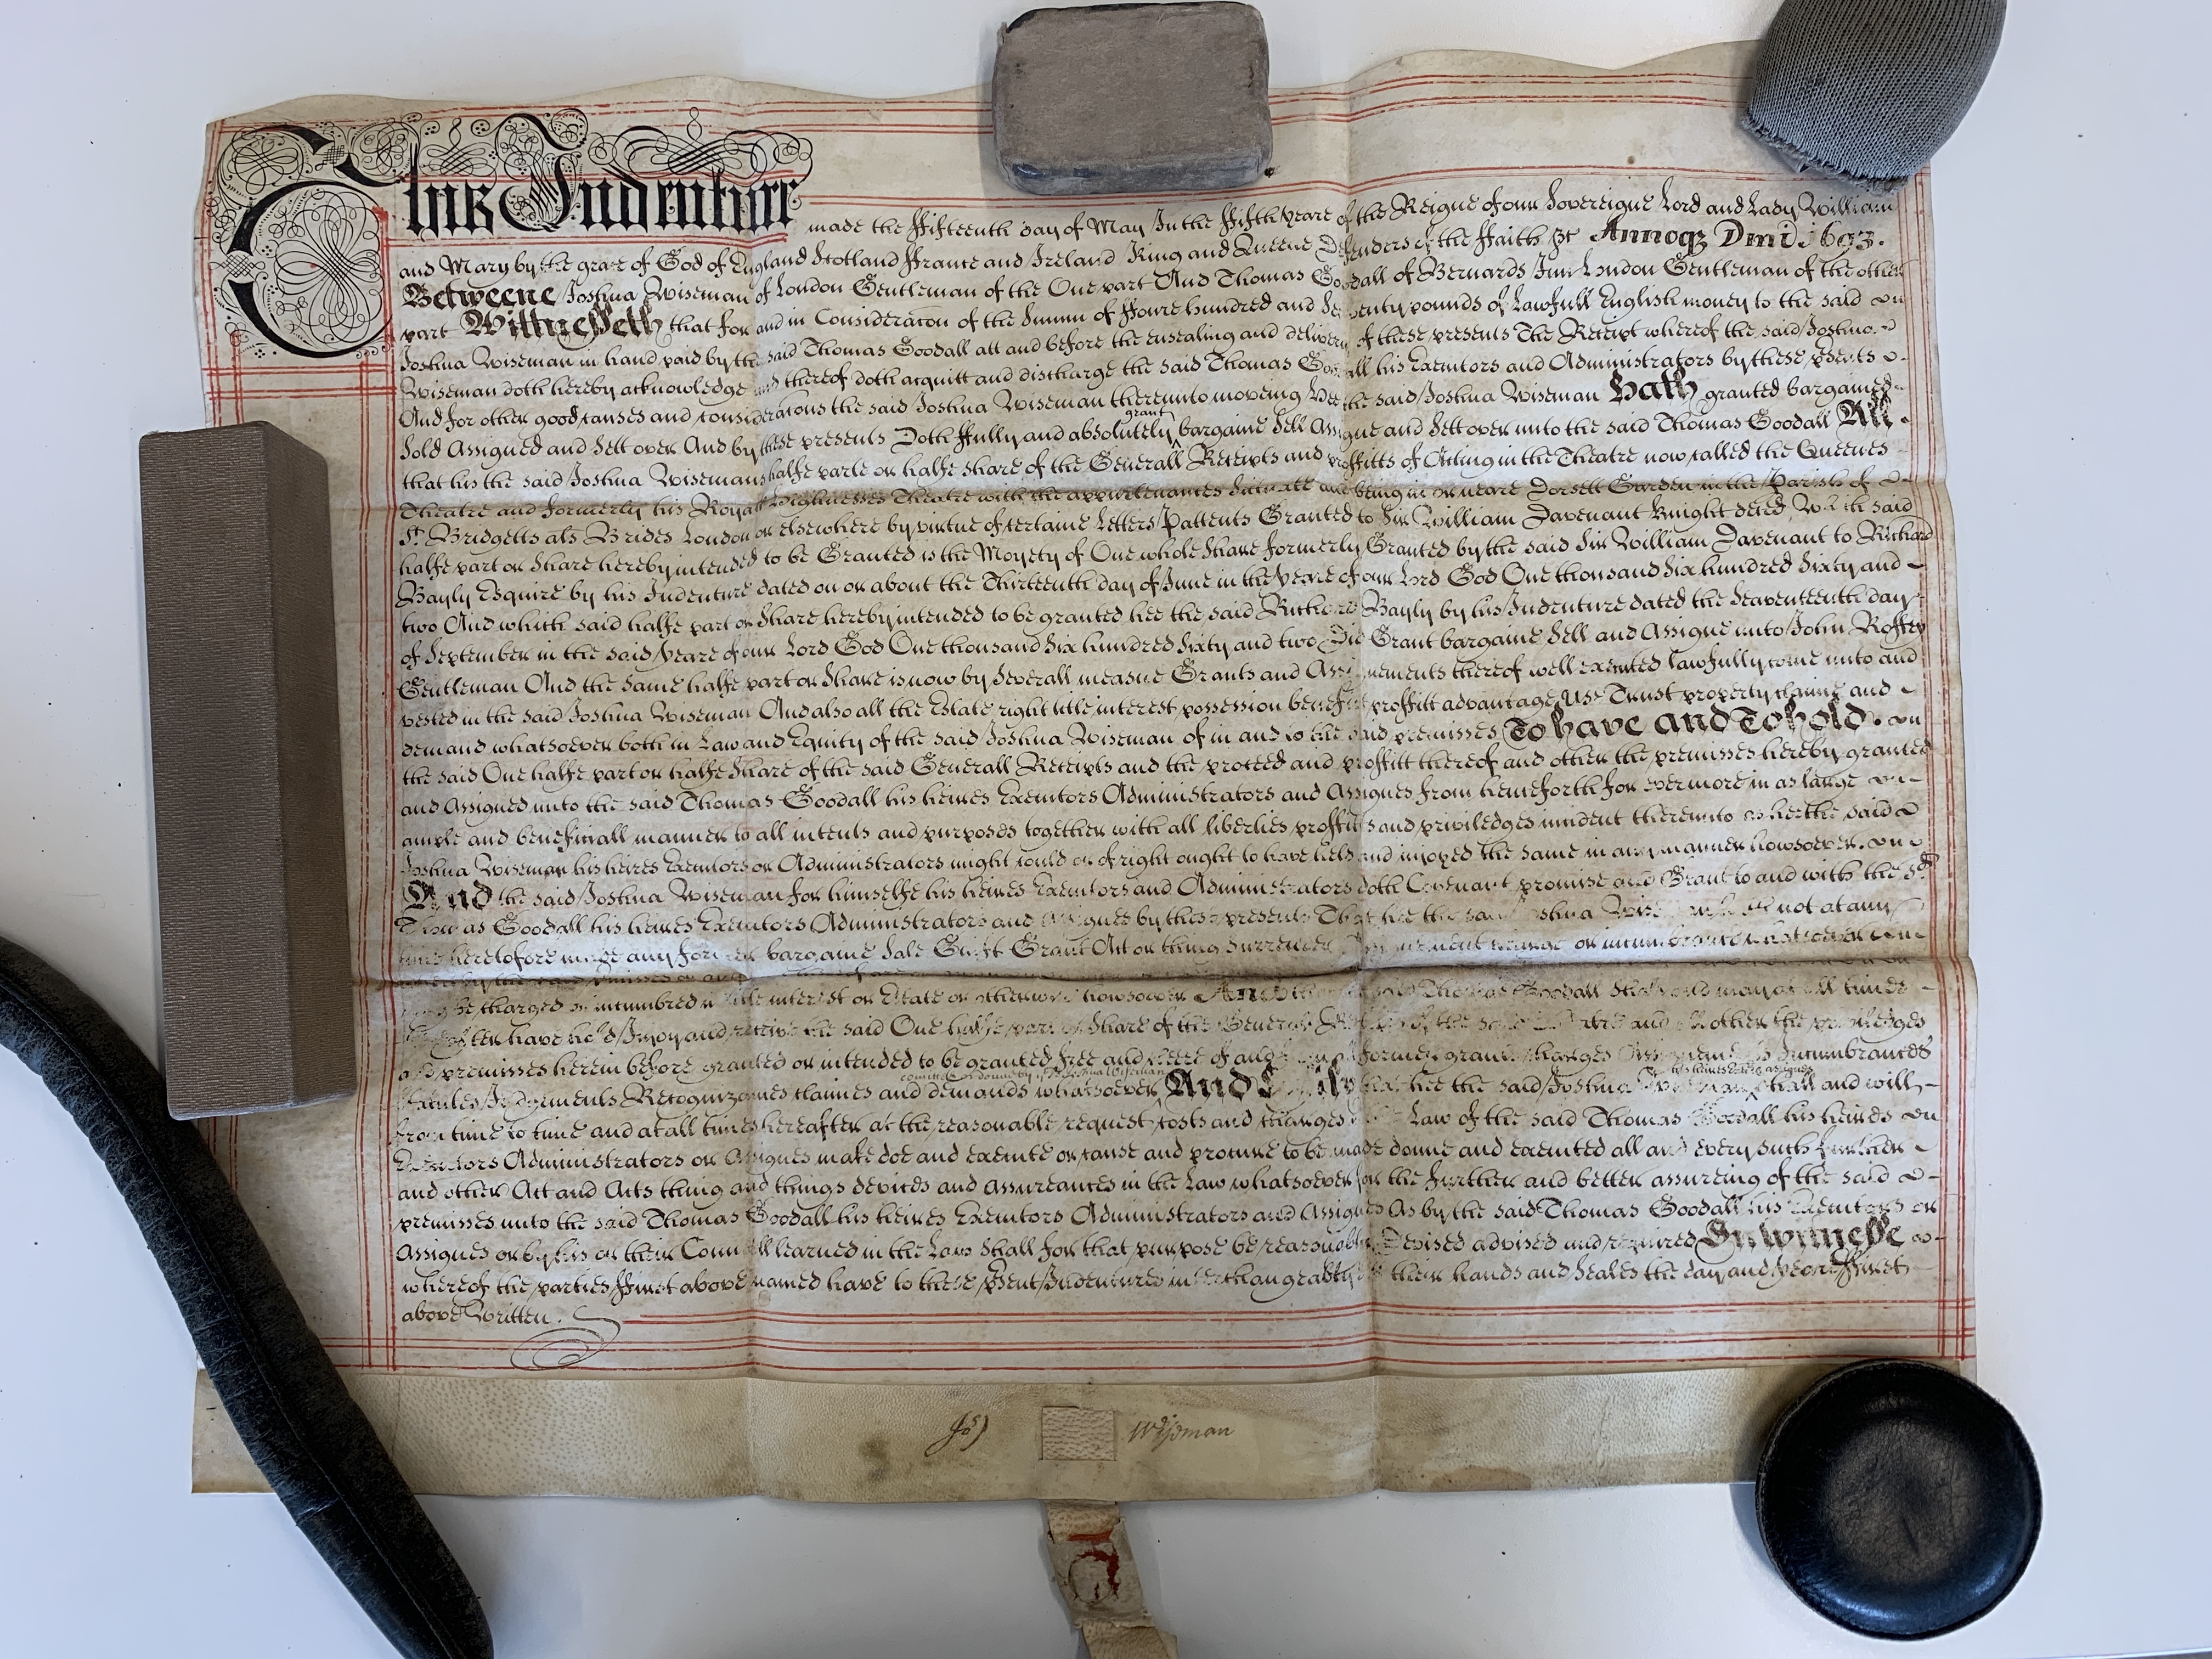 This Indenture made the ffifteenth day of May In the ffifth yeare of the Reigne of our Sovereigne Lord and Lady William
and Mary by the grace of God of England Scotland ffrance and Ireland King and Queene Defenders of the ffaith &c Annoq Dmi 1693.
Betweene Joshua Wiseman of London Gentleman of the One part And Thomas Goodall of Bernards Inn London Gentleman of the other
part Wittnesseth that for and in Consideracon of the Summ of ffoure hundred and Seventy pounds of Lawfull English money to the said
Joshua Wiseman in hand paid by the said Thomas Goodall att and before the ensealing and delivery of these presents The Receipt whereof the said Joshua
Wiseman doth hereby acknowledge and thereof doth acquitt and discharge the said Thomas Goodall his Executors and Administrators by these psents
And for other good causes and consideracons the said Joshua Wiseman thereunto moveing Hee the said Joshua Wiseman Hath granted bargained
Sold Assigned and Sett over And by these presents Doth ffully and absolutely grant bargaine Sell Assigne and Sett over unto the said Thomas Goodall All
that his the said Joshua Wisemans halfe parte or halfe share of the Generall Receipts and proffitts of Acting in the Theatre now called the Queenes
Theatre and formerly his Royall Highnesses Theatre with the appurtenances Scituate and being in or neare Dorsett Garden in the Parish of
St. Bridgetts als Brides London or elsewhere by virtue of certaine Letters Pattents Granted to Sir William Davenant Knight deced Which said
halfe part or share hereby intended to be Granted is the Moyety of One whole share formerly Granted by the said Sir William Davenant to Richard
Bayly Esquire by his Indenture dated on or about the Thirteenth day of June in the yeare of our Lord God One thousand Six hundred Sixty and
two And which said halfe part or share hereby intended to be granted hee the said Richard Bayly by his Indenture dated the Seaventeenth day
of September in the said yeare of our Lord God One thousand Six hundred Sixty and two Did Grant bargaine Sell and Assigne unto John Roffey
Gentleman And the same halfe part or share is now by Severall measne Grants and Assignements thereof well executed lawfully come unto and
vested in the said Joshua Wiseman And also all the Estate right title interest possession benefitt proffitt advantage Use Trust property claime and
demand whatsoever both in Law and Equity of the said Joshua Wiseman of in and to the said premisses To have and To hold
the said One halfe part or halfe share of the said Generall Receipts and the proceed and proffitt thereof and other the premisses hereby granted
and Assigned unto the said Thomas Goodall his heires Executors Administrators and Assignes from henceforth for evermore in as large
ample and beneficiall manner to all intents and purposes together with all liberties proffitts and priviledges incident thereunto as hee the said
Joshua Wiseman his heires Executors or Administrators might could or of right ought to have held and injoyed the same in any manner howsoever.
And the said Joshua Wiseman for himselfe his heires Executors and Administrators doth Covenant promise and Grant to and with the sd
Thomas Goodall his heires Executors Administrators and Assignes by these presents That hee the said Joshua Wiseman not at any
time heretofore made any former bargaine Sale Guift Grant Act or thing Surrender charge or incumbrance whatsoever
premisses or any
charged or incumbred title interest or Estate or otherwise howsoever And the said Thomas Goodall shall and may at all times
hereafter have hold Injoy and receive the said One halfe part or share of the Generall Receipts of the said and other the priviledges
and premisses herein before granted or intended to be granted free and cleere of and former grants charges Assignements Incumbrances
Judgements Recognizances claimes and demands whatsoever comitted or donne by the said Joshua Wiseman And lastly that hee the said Joshua Wiseman his heires Exrs or assignes shall and will
from time to time and at all times hereafter at the reasonable request costs and charges Law of the said Thomas Goodall his heires
Executors Administrators or Assignes make doe and execute or cause and procure to be made donne and executed all and every such further
and other Act and Acts thing and things devices and assureances in the Law whatsoever for the further and better assureing of the said
premisses unto the said Thomas Goodall his heires Executors Administrators and Assignes As by the said Thomas Goodall his Executors or
Assignes or by his or their Councell learned in the Law Shall for that purpose be reasonably Devised advised and required In wittnesse
whereof the parties ffirst above named have to these psent Indentures interchangeably their hands and Seales the day and yeare ffirst
above Written.
Jos) Wiseman